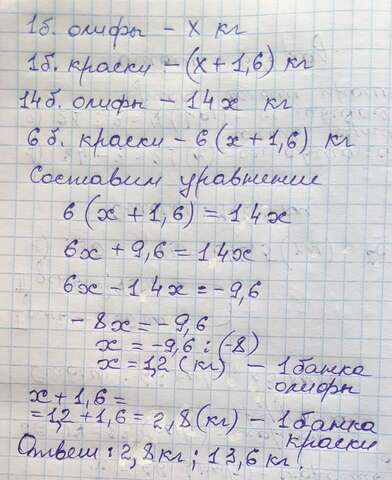 1б. олифы – х кг
1б. краски – (х+1,6) кг
14б. олифы – 14х кг
6 б. краски – 6(х+1,6) кг
Составим уравнение
6(х+1,6)=14х
6х+9,6=14х
6х-14х=-9,6
-8х=-9,6
х=-9,6:(-8)
х=1,2(кг) – 1банка
олифы
х+1,6=
=1,2+1,6=2,8(кг) – 1банка
краски
Ответ: 2,8кг; 13,6кг.